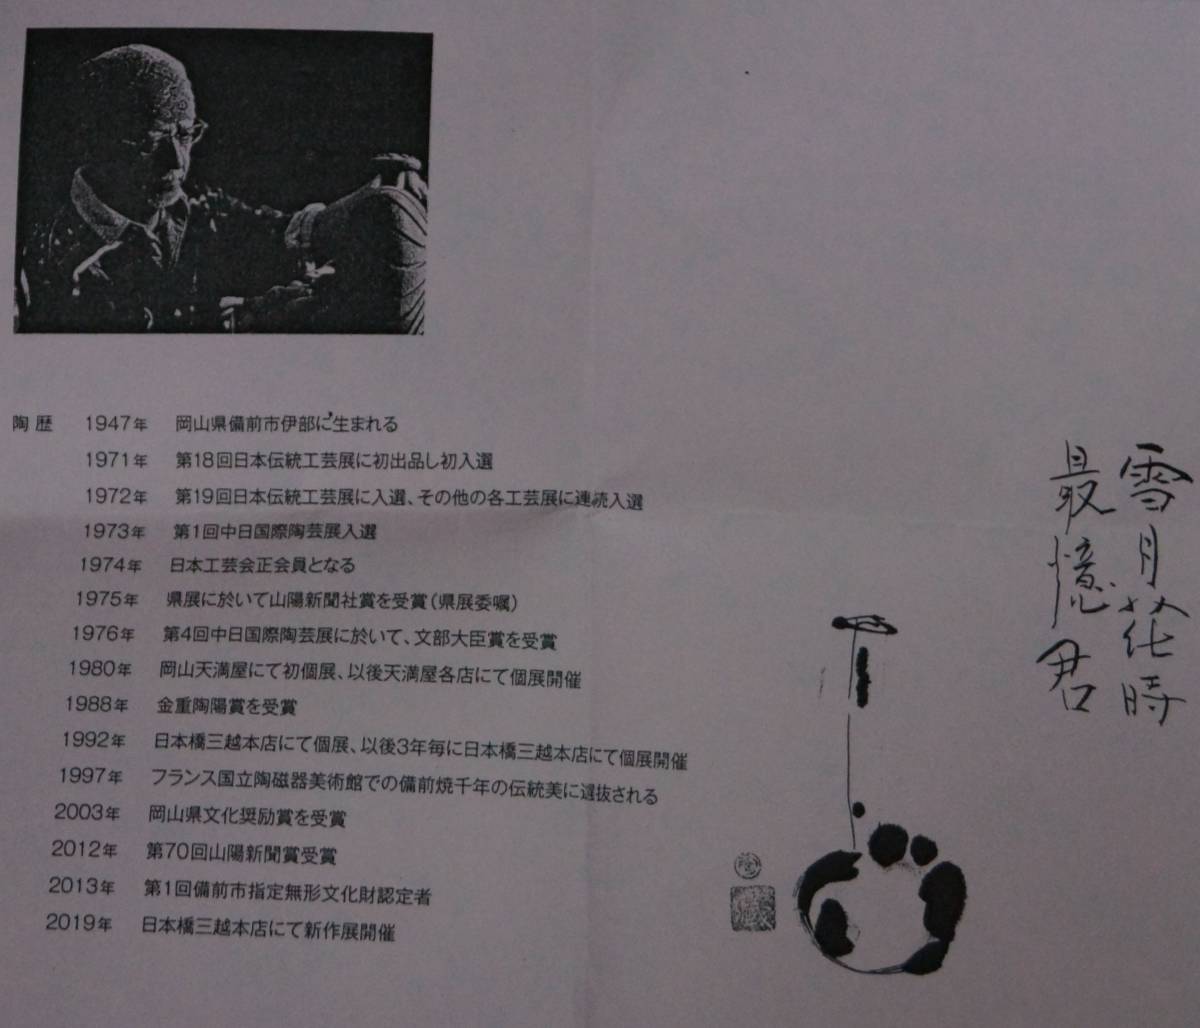 陶歴 1947年 岡山県備前市伊部に生まれる
1971年 第18回日本伝統工芸展に初出品し初入選
1972年 第19回日本伝統工芸展に入選、その他の各工芸展に連続入選
1973年 第1回中日国際陶芸展入選
1974年 日本工芸会正会員となる
1975年 県展に於いて山陽新聞社賞を受賞(県展委嘱)
1976年 第4回中日国際陶芸展に於いて、文部大臣賞を受賞
1980年 岡山天満屋にて初個展、以後天満屋各店にて個展開催
1988年 金重陶陽賞を受賞
1992年 日本橋三越本店にて個展、以後3年毎に日本橋三越本店にて個展開催
1997年 フランス国立陶磁器美術館での備前焼千年の伝統美に選抜される
2003年 岡山県文化奨励賞を受賞
2012年 第70回山陽新聞賞受賞
2013年 第1回備前市指定無形文化財認定者
2019年 日本橋三越本店にて新作展開催
雪月花時
最憶君